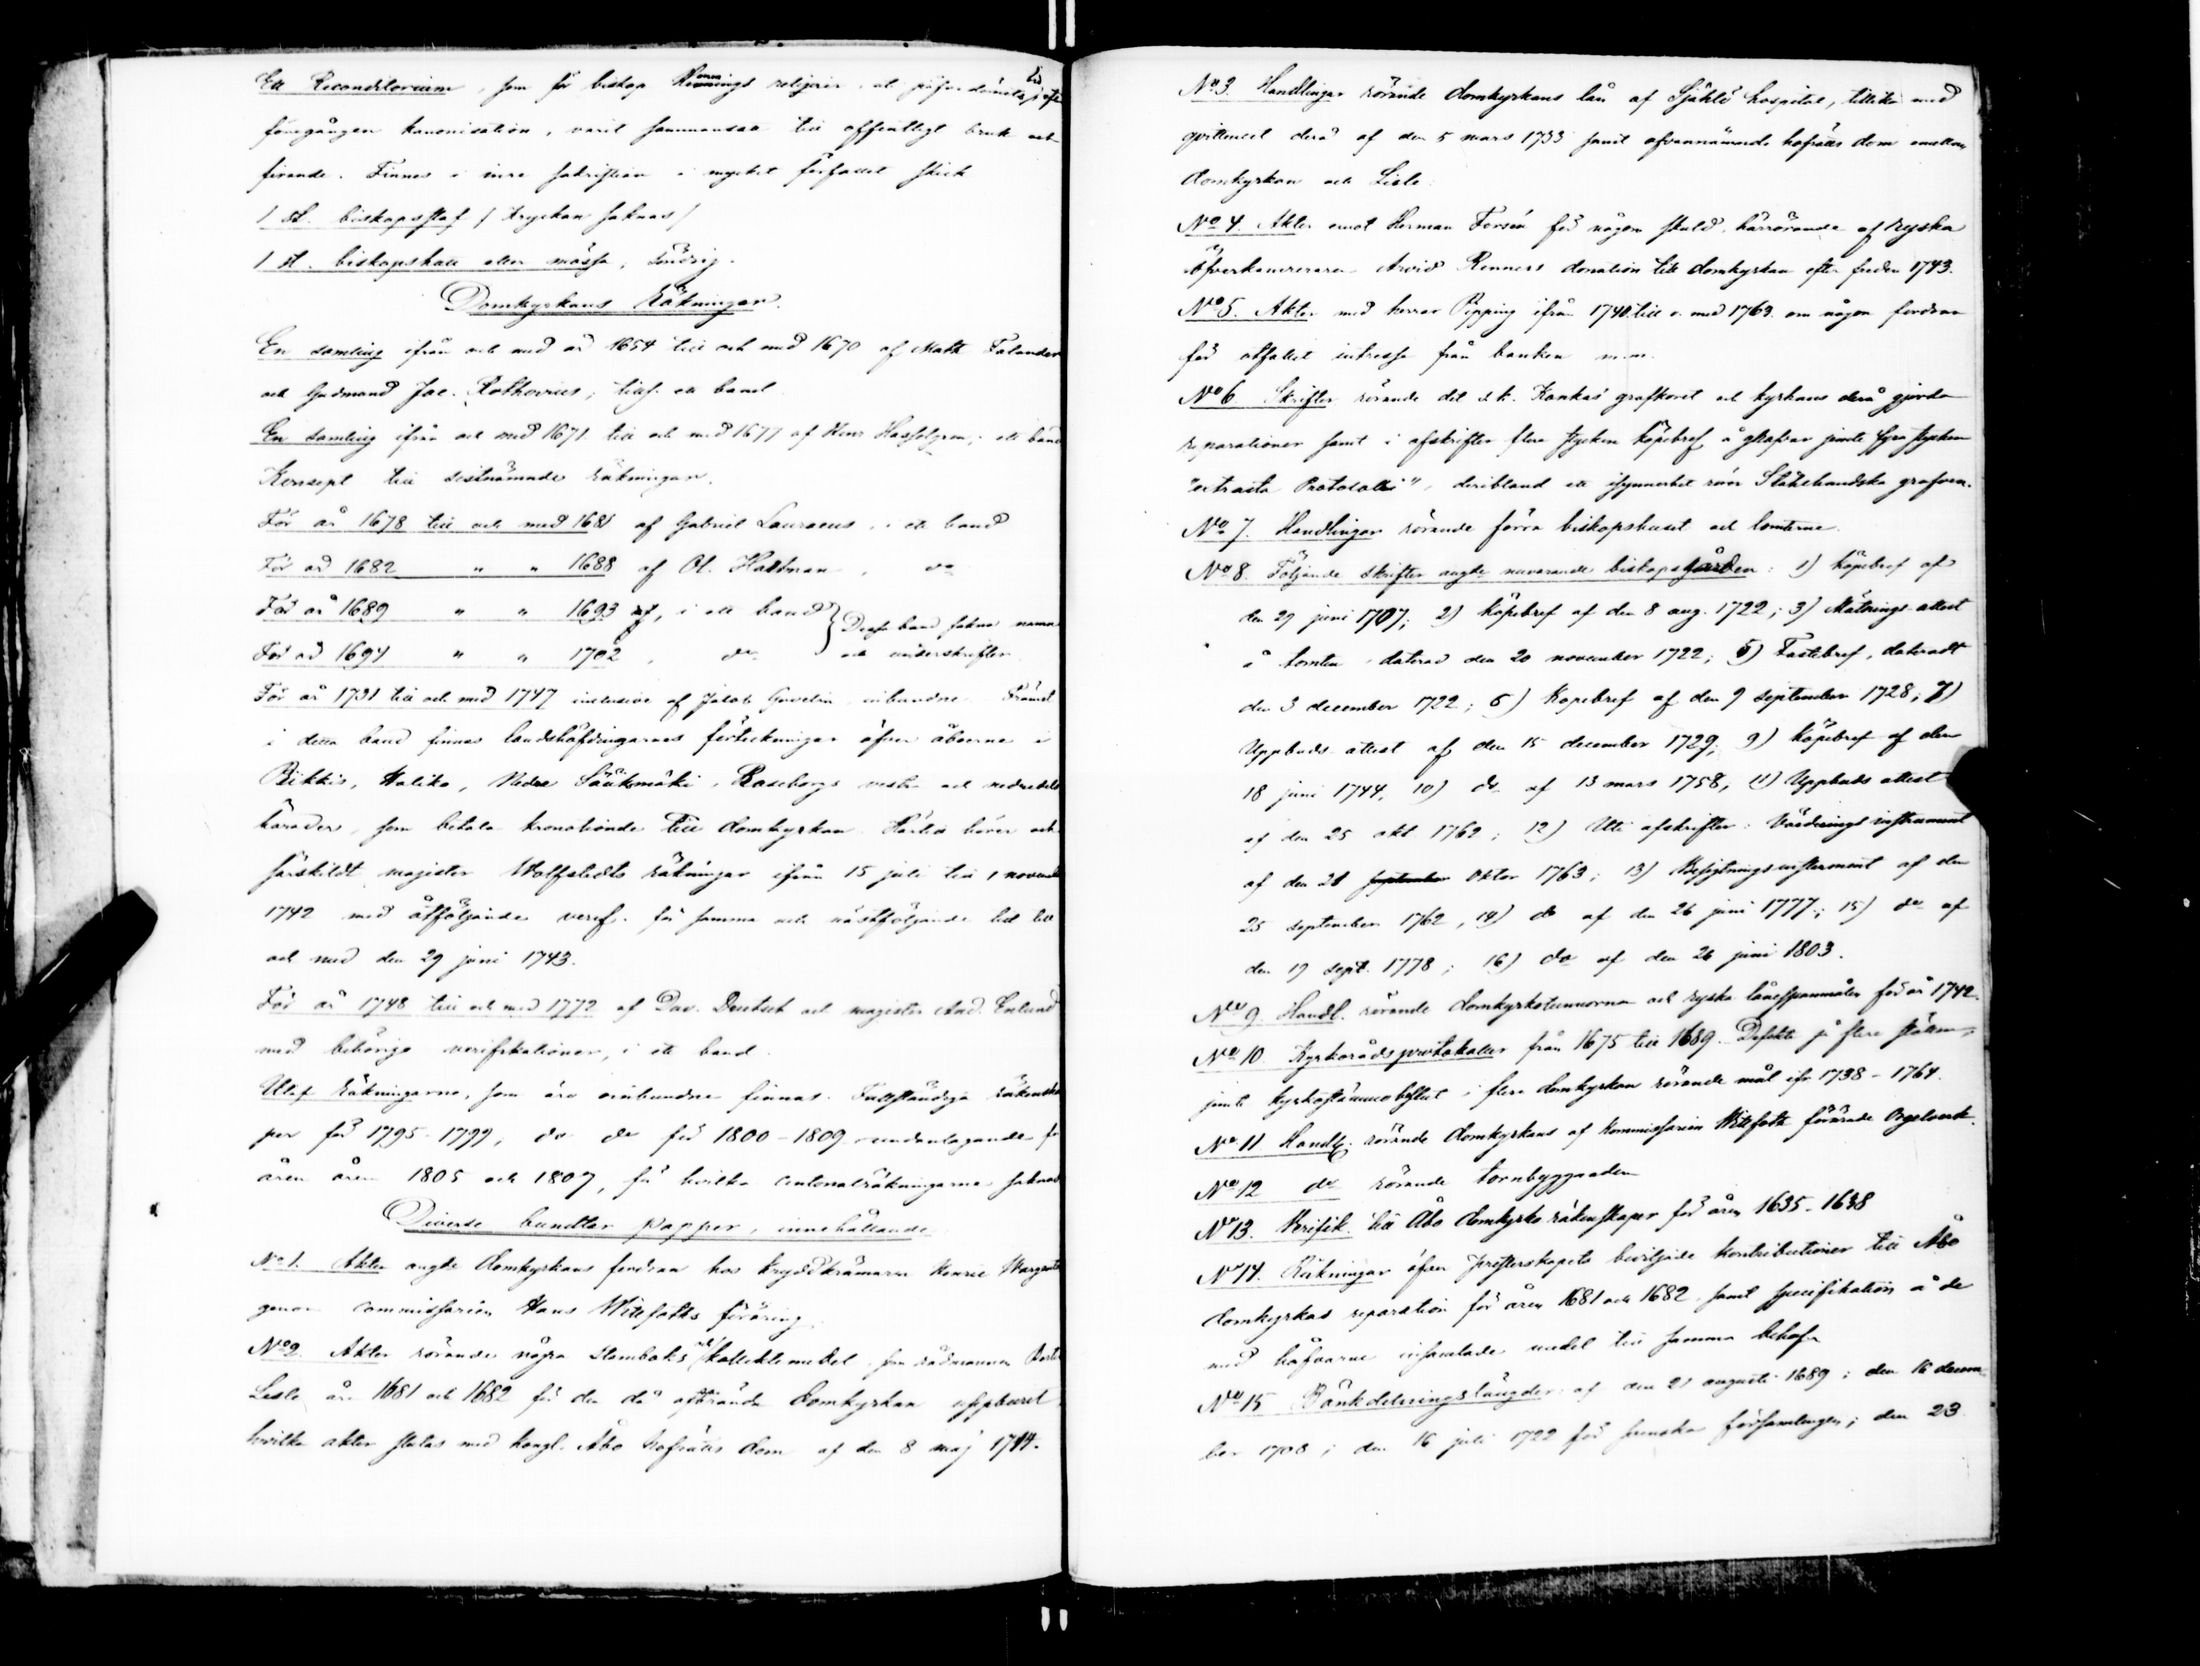 Ett Reconditorium, som för biskop Hemmings reliquier, att påfvedömets, efter
föregången kanonisation, varit till offentligt bruk och
firande. Finnes i inre sakristian i mycket förfallet skick
1 st. biskopsstaf / kryckan saknas /
1 st. biskopshatt eller mössa, sönderig.
Domkyrkans Räkningar.
En samling ifrån och med år 1654 till och med 1670 af Math. Falander
och Gudmund Jac. Rothovius, tills. ett band
En samling ifrån och med 1671 till och med 1677 af Henr. ett band
Koncept till sistnämnde räkningar.
För år 1678 till och med 1681 af Gabriel Lauraeus, i ett band
För år 1682 " " 1688 af Ol. Hartman, do
För år 1689 " " 1693 , i ett band } Dessa band sakna namn
För år 1694 " " 1702, do och underskrifter
För år 1731 till och med 1747 inclusive af Jakob Gavelin, inbundne. Främst
i detta band finnas landshöfdingarnes förteckningar öfver åboerne i
Pikkis, Haliko, Nedre Sääksmäki, Raseborgs vestra och nedredels
härader, som betala kronotionde till domkyrkan. Härtill hörer och
särskildt magister Wolfstedts räkningar ifrån 15 juli till 1 november
1742 med åtföljande verif. för samma och nästföljande tid till
och med den 29 juni 1743.
För år 1748 till och med 1772 af Dav. Deutsch och magister And. Enlund
med behöriga verifikationer, i ett band
Utaf Räkningarna, som äro oinbundne finnas. Fullständiga räkenska
per för 1795-1799, do do för 1800-1809, undantagande för
åren 1805 och 1807, för hvilka räkningarna saknas
Diverse bundtar papper, innehållande
No 1. Akter angde domkyrkans fordran hos kryddkrämaren Henric
genom commissarien Hans Witefoths föräring
No 2. Akter rörande några stamboks och kollektmedel, som rådmannen
Lisle åren 1681 och 1682 för den då afbrända domkyrkan uppburit,
hvilka akter slutas med kongl. Åbo Hofrätts dom af den 8 maj 1744.
No 3. Handlingar rörande domkyrkans lån af Själö hospital, tillika med
qvittencet derå af den 5 mars 1733 samt ofvannämnde hofrätts dom emellan
domkyrkan och Lisle.
No 4. Akter emot Herman Forsén för någon skuld, härrörande af ryska
öfverkamereraren Arvid Renners donation till domkyrkan efter freden 1743.
No 5. Akter med herrar Pipping ifrån 1740 till o. med 1763 om någon fordran
för utfallet intresse från banken m.m.
No 6 Skrifter rörande det s.k. Kankas grafkoret och kyrkans derå gjorda
reparationer samt i afskrifter flera stycken köpebref å grafvar jemte fyra stycken
"extracta Protocolli", deribland ett isynnerhet rör. Stålhandska grafven.
No 7. Handlingar rörande förra biskopshuset och tomterne
No 8. Följande skrifter angde nuvarande biskopsgården: 1) köpebref af
den 29 juni 1707; 2) köpebref af den 8 aug. 1722; 3) Mätnings attest
å tomten, daterad den 20 november 1722; 5) Fastebref, dateradt
den 3 december 1722; 6) Köpebref af den 9 september 1728; 7)
Uppbuds attest af den 15 december 1729; 9) köpebref af den
18 juni 1744, 10) do af 13 mars 1758, 11) Uppbuds attest
af den 25 okt. 1762; 12) Uti afskrifter: Värderings instrument
af den 28 september oktober 1763; 13) Besigtnings instrument af den
25 september 1762, 14) do af den 26 juni 1777; 15) do af
den 19 sept. 1778; 16) do af den 26 juni 1803.
No 9. Handl. rörande domkyrkotunnorna och ryska lånespannmålen för år 1742.
No 10. Kyrkorådsprotokoller från 1675 till 1689. Defekta på flera ställen,
jemte kyrkostämmobeslut i flera domkyrkan rörande mål ifr. 1738-1764.
No 11 Handl. rörande domkyrkans af kommissarien Witefoth förärade Orgelverk.
No 12 do rörande tornbyggnaden
No 13. Verifik. till Åbo domkyrko räkenskaper för åren 1635-1638
No 14. Räkningar öfver presterskapets beviljade kontributioner till Åbo
domkyrkas reparation för åren 1681 och 1682, samt specifikation å de
med håfvarne insamlade medel till samma behof
No 15 Bänkdelningslängder: af den 21 augusti 1689; den 16 decem-
ber 1708; den 16 juli 1722 för svenska församlingen; den 23